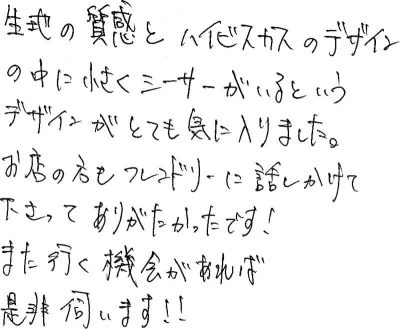 生地の質感とハイビスカスのデザイン
の中に小さくシーサーがいるという
デザインがとても気に入りました。
お店の方もフレンドリーに話しかけて
下さってありがたかったです!
また行く機会があれば
是非伺います!!